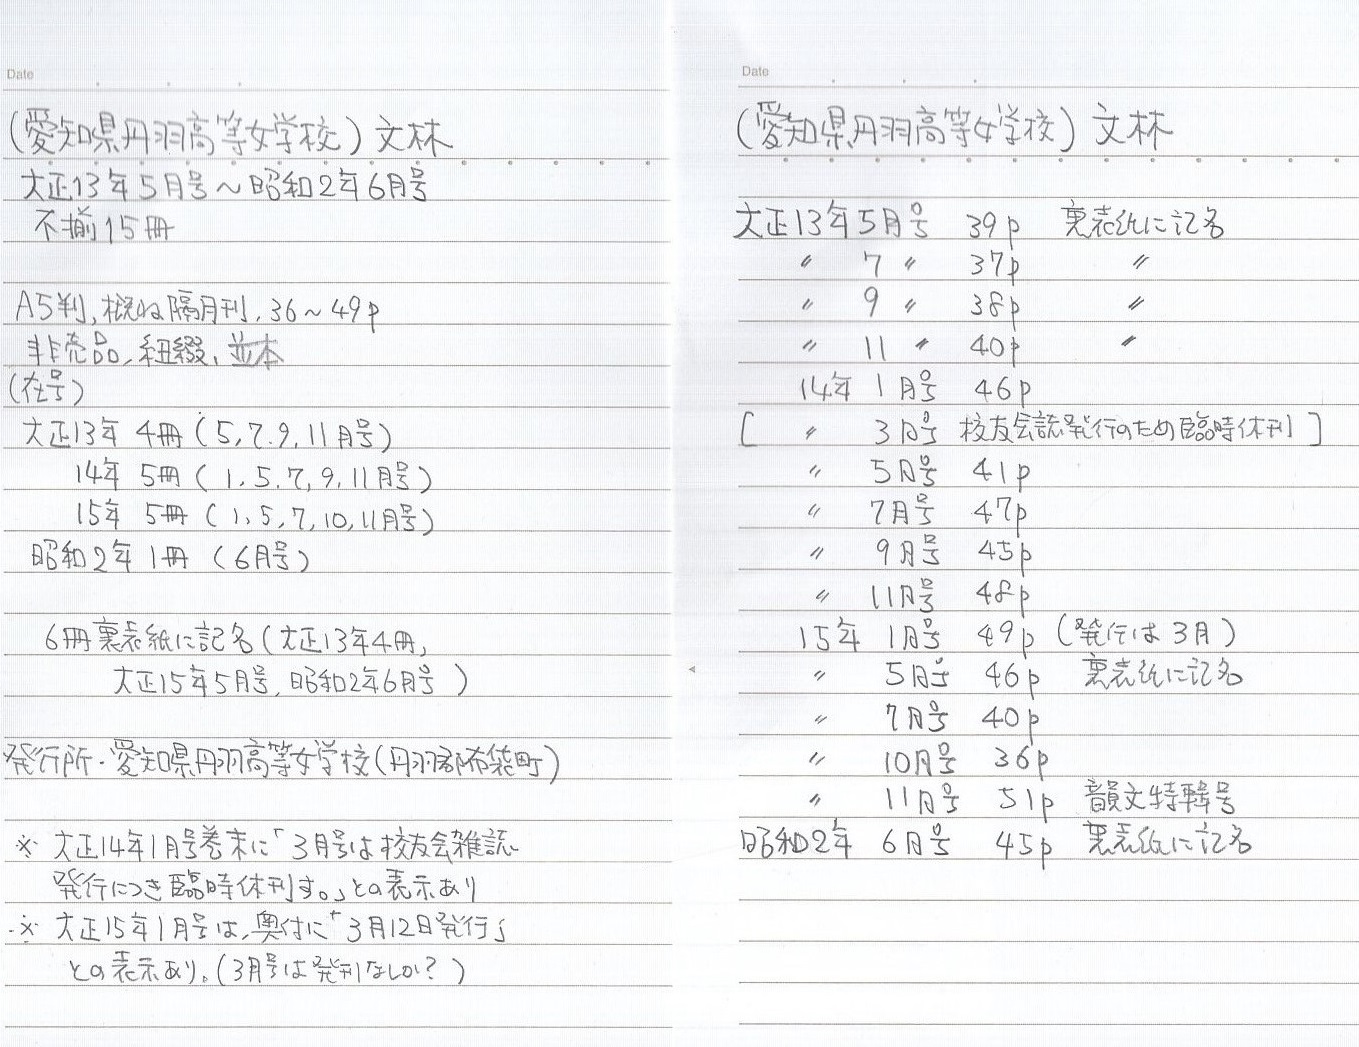 Date
(愛知県丹羽高等女学校) 文林
大正13年5月号～昭和2年6月号
不揃15冊
A5判, 概ね隔月刊, 36～49p
非売品, 紐綴, 並本
(在号)
大正13年 4冊 (5, 7, 9, 11月号)
14年 5冊 (1, 5, 7, 9, 11月号)
15年 5冊 (1, 5, 7, 10, 11月号)
昭和2年 1冊 (6月号)
6冊裏表紙に記名 (大正13年4冊,
大正15年5月号, 昭和2年6月号)
発行所・愛知県丹羽高等女学校(丹羽郡布袋町)
※ 大正14年1月号巻末に「3月号は校友会雑誌
発行につき臨時休刊す。」との表示あり
※ 大正15年1月号は, 奥付に「3月12日発行」
との表示あり。(3月号は発刊なしか?)
Date
(愛知県丹羽高等女学校) 文林
大正13年5月号 39p 裏表紙に記名
〃 7 〃 37p 〃
〃 9 〃 38p 〃
〃 11 〃 40p 〃
14年 1月号 46p
[ 〃 3月号 校友会誌発行のため臨時休刊 ]
〃 5月号 41p
〃 7月号 47p
〃 9月号 45p
〃 11月号 48p
15年 1月号 49p (発行は3月)
〃 5月号 46p 裏表紙に記名
〃 7月号 40p
〃 10月号 36p
〃 11月号 51p 韻文特輯号
昭和2年 6月号 45p 裏表紙に記名